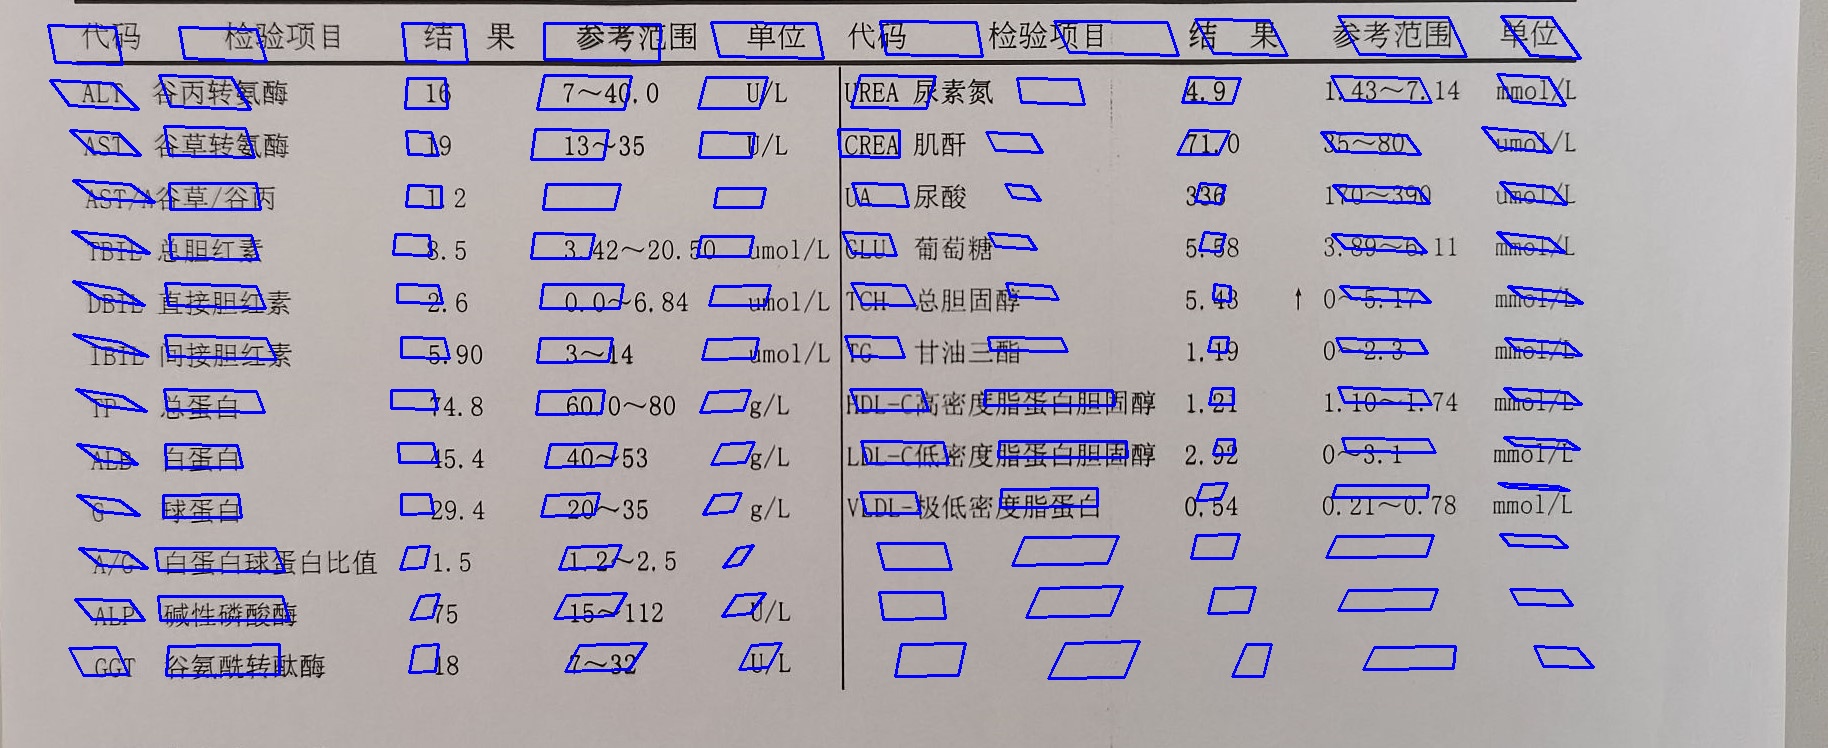 代码 检验项目 结 果 参考范围 单位 代码 检验项目 结 果 参考范围 单位
ALT 谷丙转氨酶 16 7～40.0 U/L UREA 尿素氮 4.9 1.43～7.14 mmol/L
AST 谷草转氨酶 19 13～35 U/L CREA 肌酐 71.0 35～80 umol/L
AST/A谷草/谷丙 1.2 UA 尿酸 336 170～390 umol/L
TBIL 总胆红素 8.5 3.42～20.50 umol/L GLU 葡萄糖 5.58 3.89～6.11 mmol/L
DBIL 直接胆红素 2.6 0.0～6.84 umol/L TCH 总胆固醇 5.43 ↑ 0～5.17 mmol/L
IBIL 间接胆红素 5.90 3～14 umol/L TG 甘油三酯 1.19 0～2.3 mmol/L
TP 总蛋白 74.8 60.0～80 g/L HDL-C高密度脂蛋白胆固醇 1.21 1.10～1.74 mmol/L
ALB 白蛋白 45.4 40～53 g/L LDL-C低密度脂蛋白胆固醇 2.92 0～3.1 mmol/L
G 球蛋白 29.4 20～35 g/L VLDL-极低密度脂蛋白 0.54 0.21～0.78 mmol/L
A/G 白蛋白球蛋白比值 1.5 1.2～2.5
ALP 碱性磷酸酶 75 15～112 U/L
GGT 谷氨酰转肽酶 18 7～32 U/L